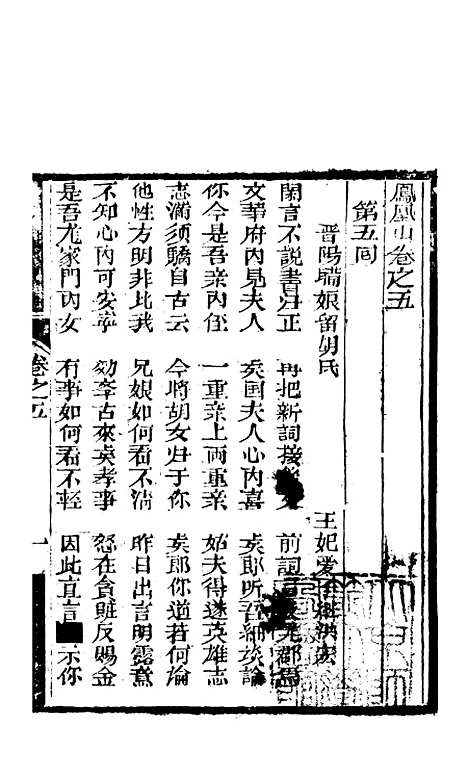 鳳凰山卷之五
第五回
晋陽瑞娘留胡氏 王妃愛
閑言不說書归正 再把新詞接 前詞
文華府內見夫人 矦国夫人心內喜 矦郎听吾細談論
你今是吾亲內侄 一重亲上両重亲 始夫得遂英雄志
志滿須驕自古云 今將胡女归于你 矦郎你道若何論
他性方明非比我 兄娘如何看不清 昨日出言明露意
不知心內可安寧 幼李古來矣孝事 怒在貪賍反賜金
是吾尤家門內女 有事如何看不輕 因此直言 示你
卷之五
一